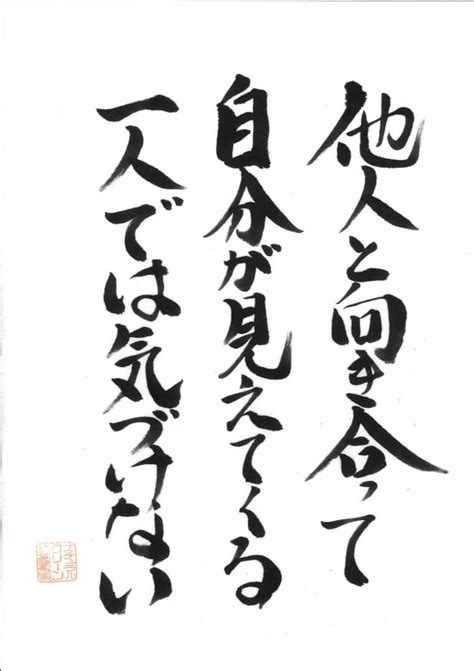 他人と向き合って
自分が見えてくる
一人では気づけない